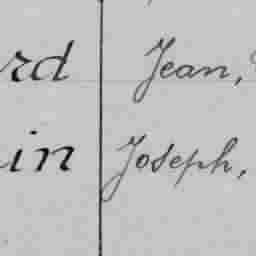 rd Jean,
in Joseph,